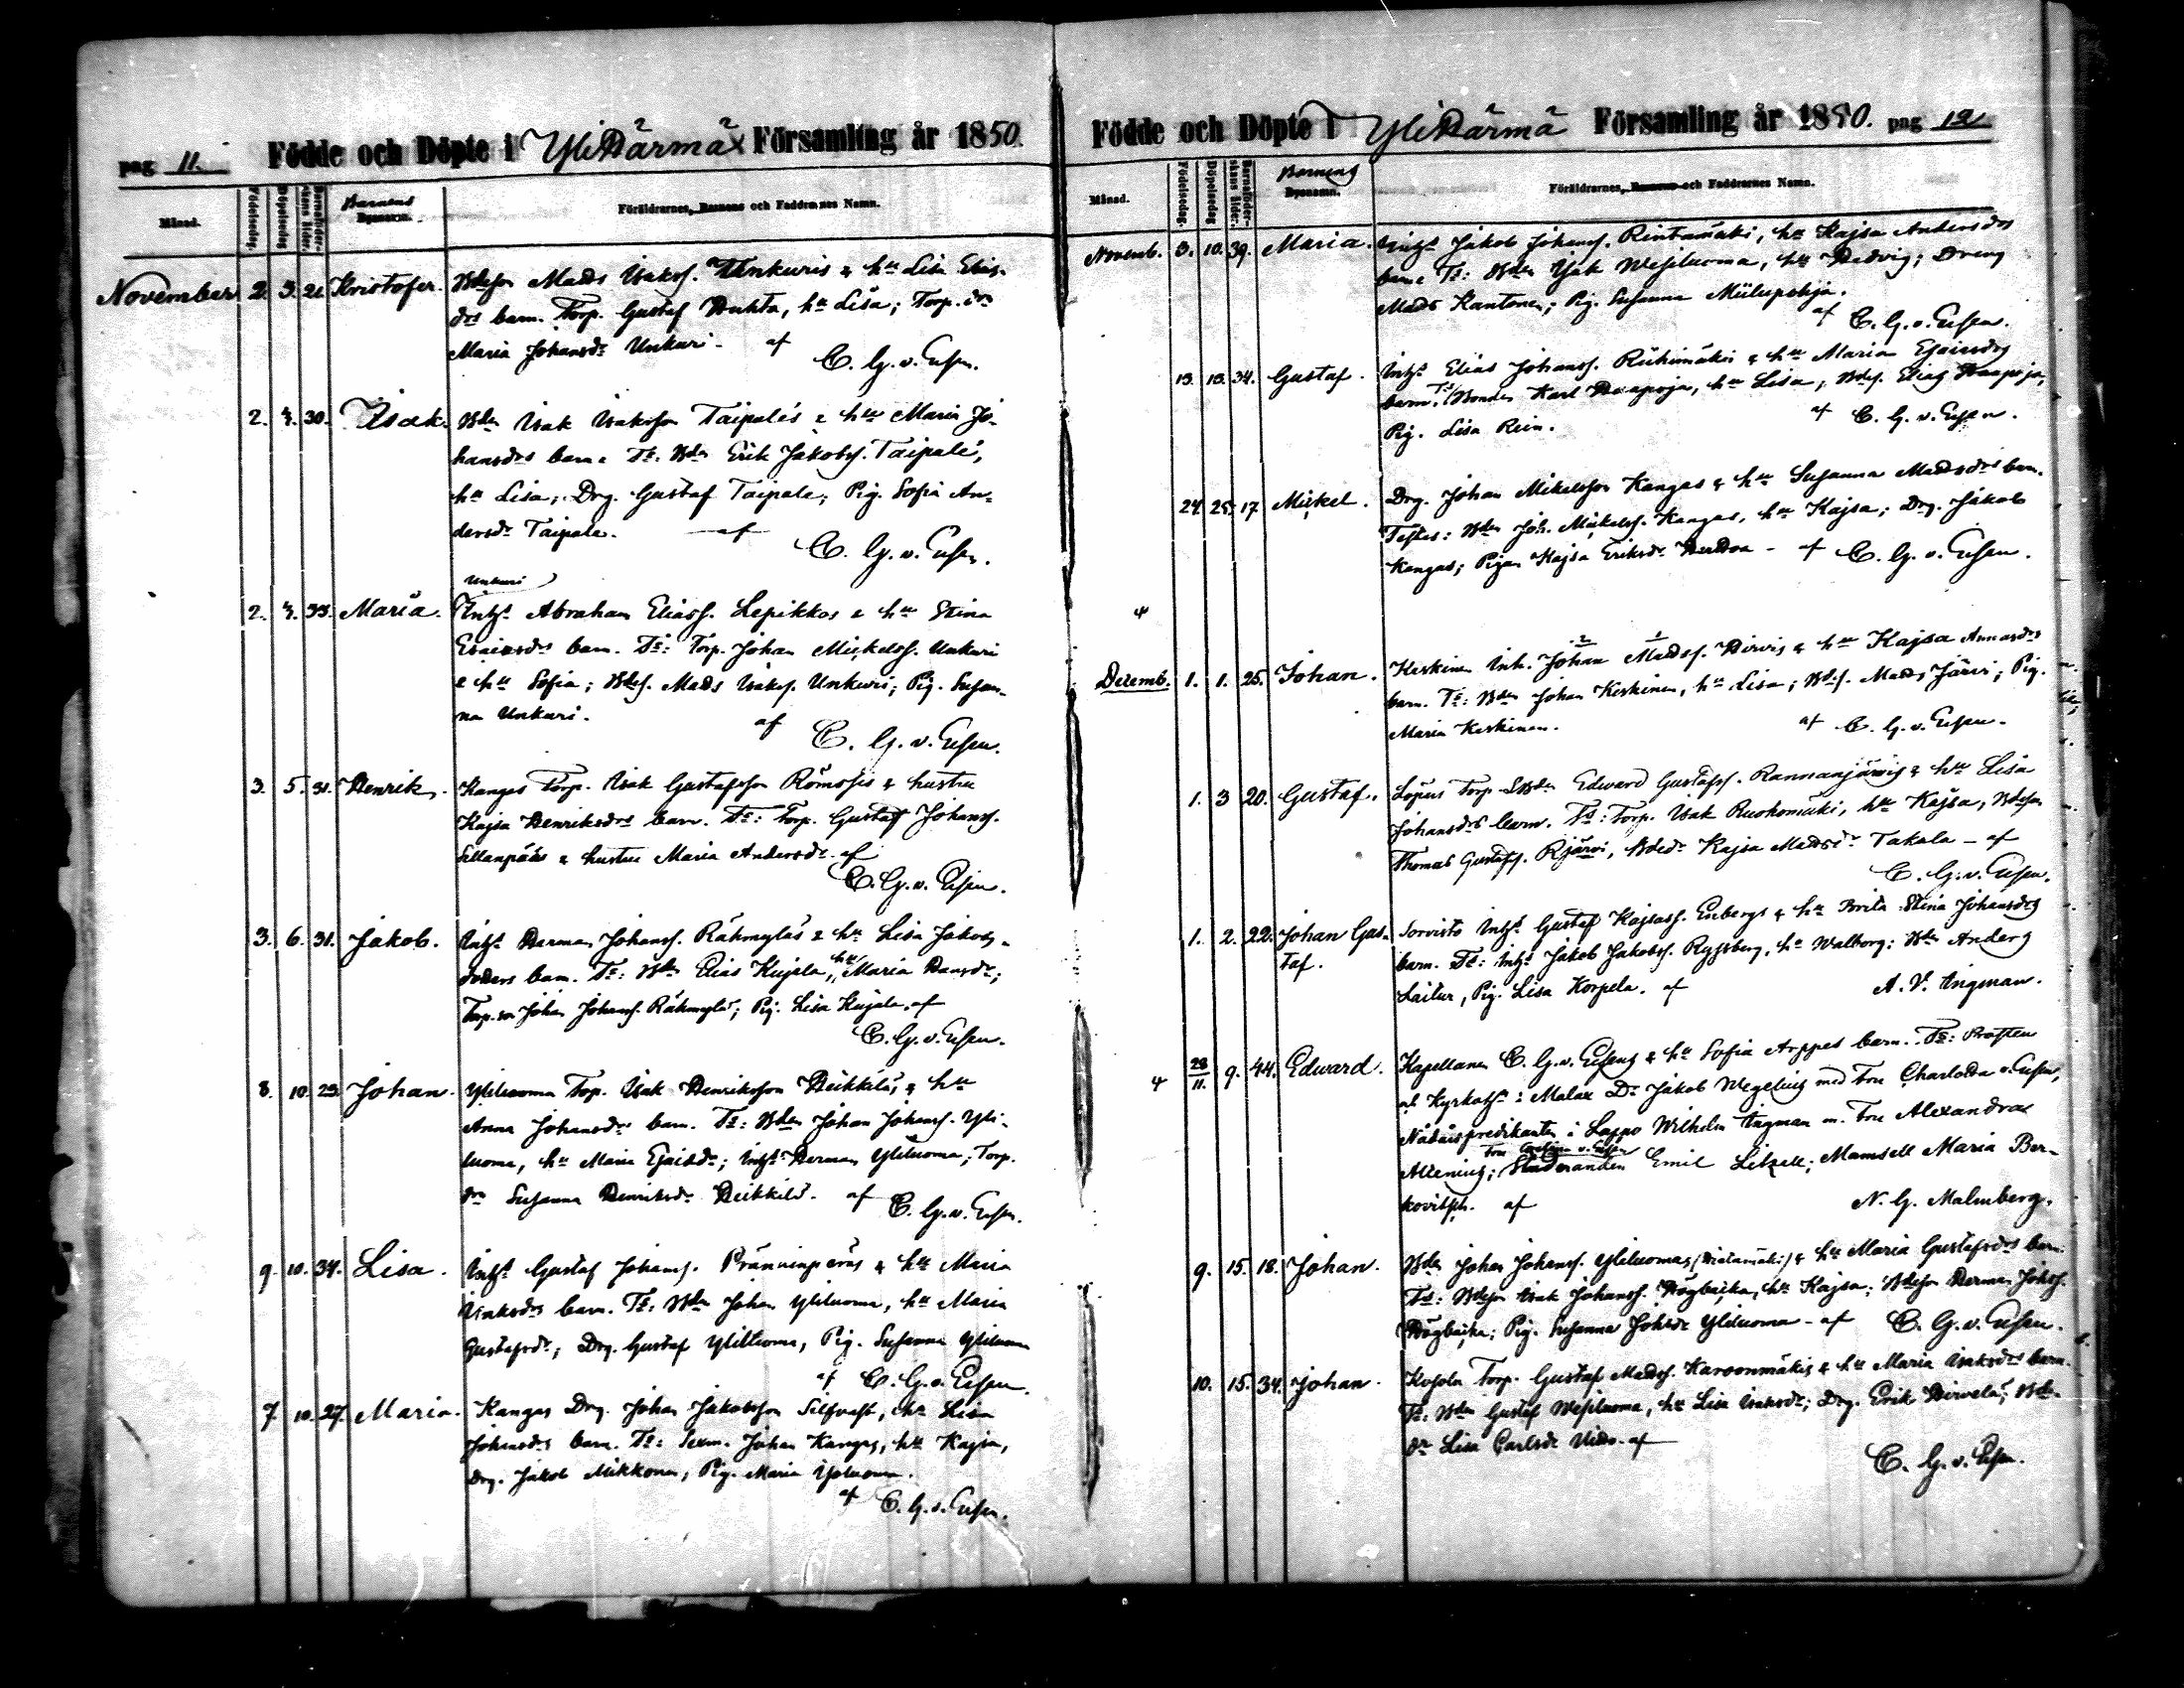 pag 11. Födde och Döpte i YliHärmä Församling år 1850.
Månad. Födelsedag. Döpelsedag. Barnaföderskans ålder. Barnens Bynamn. Föräldrarnes, Barnens och Faddrarnes Namn.
November 2. 3. 21. Kristofer. Bdeson Mads Isakss. Unkuris & hu Lisa Elias-
drs barn. Torp. Gustaf Huhta, hu Lisa; Torp. dr
Maria Johansdr Unkuri - af
C. G. v. Essen.
2. 4. 30. Isak. Bdn Isak Isaksson Taipales & hu Maria Jo-
hansdrs barn. Ts: Bdn Erik Jakobss. Taipale,
hu Lisa; Drg. Gustaf Taipale; Pig. Sofia An-
dersdr Taipale. — af
C. G. v. Essen.
Unkuri
2. 4. 33. Maria. Inhs Abraham Eliass. Lepikkos & hu Stina
Esaiasdrs barn. Ts: Torp. Johan Mickelss. Unkuri
& hu Sofia; Bdes. Mads Isakss. Unkuri; Pig. Susan-
na Unkuri. af
C. G. v. Essen.
3. 5. 31. Henrik. Kangas Torp. Isak Gustafsson & hustru
Kajsa Henriksdrs barn. Ts: Torp. Gustaf Johanss.
Sillanpääs & hustru Maria Andersdr af
C. G. v. Essen.
3. 6. 31. Jakob. Inhs Herman Johanss. & hu Lisa Jakobs-
doters barn. Ts: Bdn Elias Kujala, hu Maria Hansdr;
Torp. son Johan Johanss. Pig. Lisa Kujala, af
C. G. v. Essen.
8. 10. 23. Johan. Yliluoma Torp. Isak Henriksson Heikkiläs, & hu
Anna Johansdrs barn. Ts: Bdn Johan Johanss. Yli-
luoma, hu Maria Esaisdr; Inhs Herman Yliluoma; Torp.
dr Susanna Henriksdr Heikkilä. af
C. G. v. Essen.
9. 10. 34. Lisa. Inhs Gustaf Johanss. & hu Maria
Isaksdrs barn. Ts: Bdn Johan Yliluoma, hu Maria
Gustafsdr; Drg. Gustaf Yliluoma, Pig. Susanna Yliluoma
af C. G. v. Essen.
7. 10. 27. Maria. Kangas Drg. Johan Jakobsson hu Lisa
Johansdrs barn. Ts: Sexm. Johan Kangas, hu Kajsa,
Drg. Jakob Mikkonen, Pig. Maria
af C. G. v. Essen.
Födde och Döpte i YliHärmä Församling år 1850. pag 12
Månad. Födelsedag. Döpelsedag. Barnaföderskans ålder. Barnens Bynamn. Föräldrarnes, Barnens och Faddrarnes Namn.
Novemb. 3. 10. 39. Maria. Inhs Jakob Johanss. Rintamäki, hu Kajsa Andersdrs
barn. Ts: Bdn Isak Wesiluoma, hu Hedvig; Dreng
Mads Kantonen; Pig. Susanna
af C. G. v. Essen.
13. 13. 34. Gustaf. Inhs Elias Johanss. Riihimäkis & hu Maria Esaiasdrs
barn. Ts/Bonden Karl Haapoja, hu Lisa, Bdes. Elias Haapoja,
Pig. Lisa Rein. af C. G. v. Essen.
24. 25. 17. Mickel. Drg. Johan Mikelsson Kangas & hu Susanna Madsdrs barn.
Testes: Bdn Joh. Mickelss. Kangas, hu Kajsa; Drg. Jakob
Kangas; Pigan Kajsa Eriksdr - af C. G. v. Essen.
Decemb. 1. 1. 25. Johan. Keskinen Inh. Johan Madss. & hu Kajsa Annasdrs
barn. Ts: Bdn Johan Keskinen, hu Lisa; Bds. Mads Järvi; Pig.
Maria Keskinen. af C. G. v. Essen.
1. 3 20. Gustaf. Torp. Edward Gustafss. Rannanjärvis & hu Lisa
Johansdrs barn. Ts: Torp. Isak Ruohomäki, hu Kajsa, Bdeson
Thomas Gustafss. Rjärvi, Bdedr Kajsa Madsdr Takala - af
C. G. v. Essen.
1. 2. 22. Johan Gus- Sorvisto Inhs Gustaf Kajsass. Enbergs & hu Brita Stina Johansdrs
taf. barn. Ts: Inhs Jakob Jakobss. Ryssberg, hu Walborg: Bdn Anders
Laitur, Pig. Lisa Korpela. af A. V. Ingman.
28/11. 9. 44. Edward. Kapellanen C. G. v. Essens & hu Sofia Arppes barn. Ts: Prosten
ok Kyrkohn i Malax Dr Jakob Wegelius med fru Charlotta v. Essen,
Nådårspredikanten i Lappo Wilhelm Ingman m. fru Alexandra
Allenius; Studeranden Emil Litzell; Mamsell Maria Ber-
kovitsch. af N. G. Malmberg.
9. 15. 18. Johan. Bdn Johan Johanss. Yliluomas & hu Maria Gustafsdrs barn.
Ts: Bdeson Isak Johanss. Högbacka, hu Kajsa; Bdeson Herman Johss.
Högbacka; Pig. Susanna Johsdr Yliluoma - af C. G. v. Essen.
10. 15. 34. Johan. Kosola Torp. Gustaf Madss. & hu Maria Isaksdrs barn.
Ts: Bdn Gustaf Wesiluoma, hu Lisa Isaksdr; Drg. Erik Hirvelä; Bde-
dr Lisa Carlsdr - af
C. G. v. Essen.